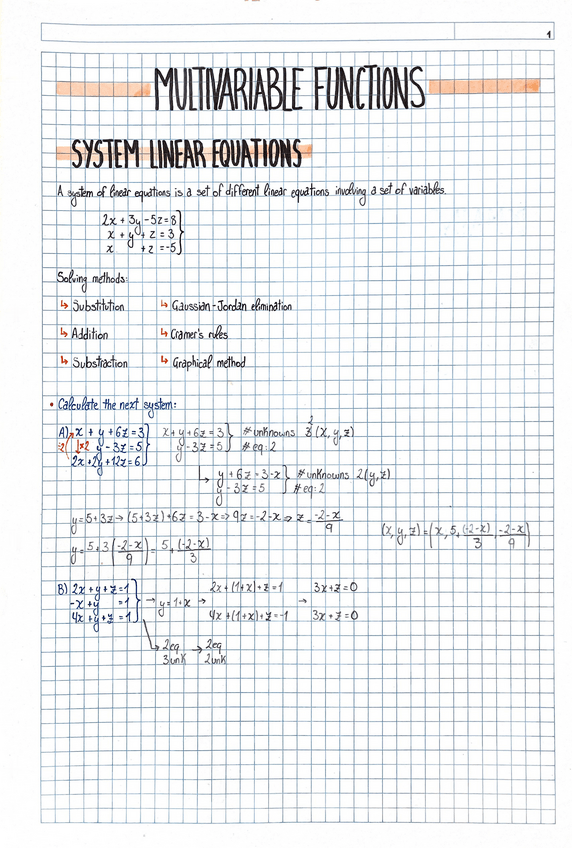 1
MULTIVARIABLE FUNCTIONS
SYSTEM LINEAR EQUATIONS
A system of linear equations is a set of different linear equations involving a set of variables.
2x + 3y - 5z = 8
x + y + z = 3
x + z = -5
Solving methods:
↳ Substitution ↳ Gaussian-Jordan elimination
↳ Addition ↳ Cramer's rules
↳ Substraction ↳ Graphical method
• Calculate the next system:
A) x + y + 6z = 3 x + y + 6z = 3 # unknowns (x, y, z)
y - 3z = 5 y - 3z = 5 # eq: 2
2x + 2y + 12z = 6
y + 6z = 3 - x # unknowns 2 (y, z)
y - 3z = 5 # eq: 2
y = 5 + 3z → (5 + 3z) + 6z = 3 - x ⇒ 9z = -2 - x ⇒ z = (-2-x)/9
(x, y, z) = (x, 5 + (-2-x)/3, (-2-x)/9)
y = 5 + 3((-2-x)/9) = 5 + (-2-x)/3
B) 2x + y + z = 1 2x + (1+x) + z = 1 3x + z = 0
-x + y = 1 → y = 1 + x → →
4x + y + z = 1 4x + (1+x) + z = -1 3x + z = 0
↳ 2eq → 2eq
3unk 2unk